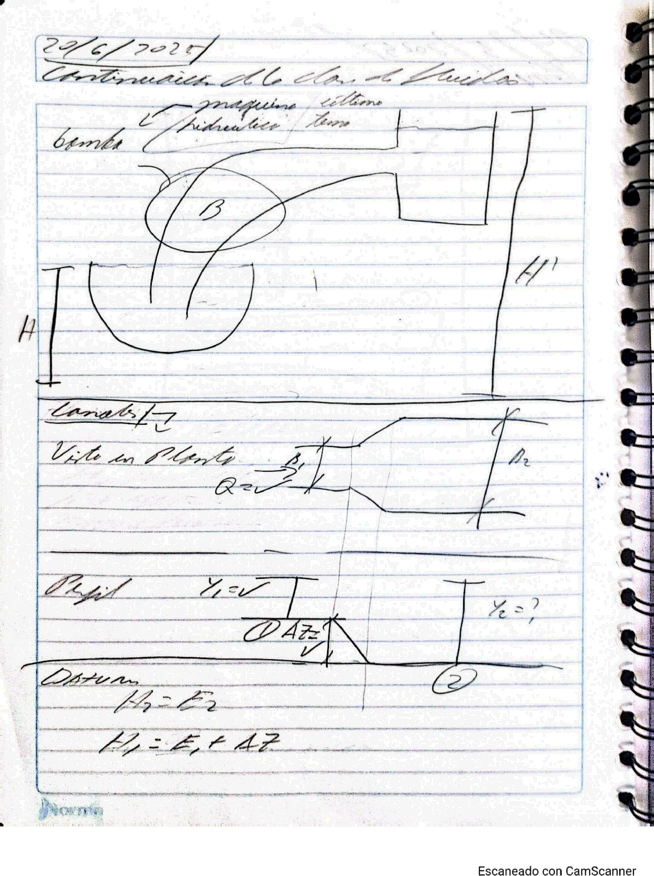 20/6/2025
Continuación de la clase de fluidos
maquina
hidraulica
bomba
B
H'
H
Canales
Vista en Planta
B1
Q=✓
B2
Perfil
Y1=✓
Y2=?
① ΔZ=✓
②
Datum
H2=E2
H1=E1+ΔZ
Norma
Escaneado con CamScanner